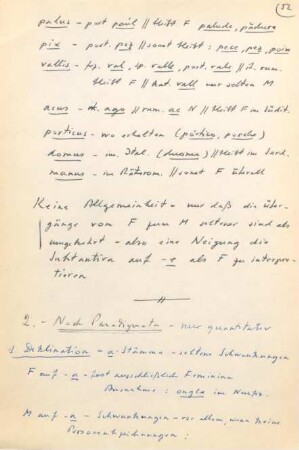 52
palus - port paúl // bleibt F palude, pădure
pix - port. pez // sonst bleibt: pece, pez, poix
vallis - fz. val, sp. valle, port. vale // it. rum.
bleibt F // kat. vall nur selten M
acus - it. ago // rum. ac N // bleibt F im Südit.
porticus - wo erhalten (pórtico, porche)
domus - im Ital. (duomo) // bleibt im Sard.
manus - im Rätorom. // sonst F überall
Keine Allgemeinheit - nur daß die Über-
gänge vom F zum M seltener sind als
umgekehrt - also eine Neigung die
Substantiva auf -e als F zu interpre-
tieren
2. - Nach Paradigmata - nur quantitativ
1. Deklination - a-Stämme - seltene Schwankungen
F auf -a - fast ausschließlich Feminina
Ausnahme: ongla im
M auf -a - Schwankungen - vor allem, wenn keine
Personenbezeichnungen: